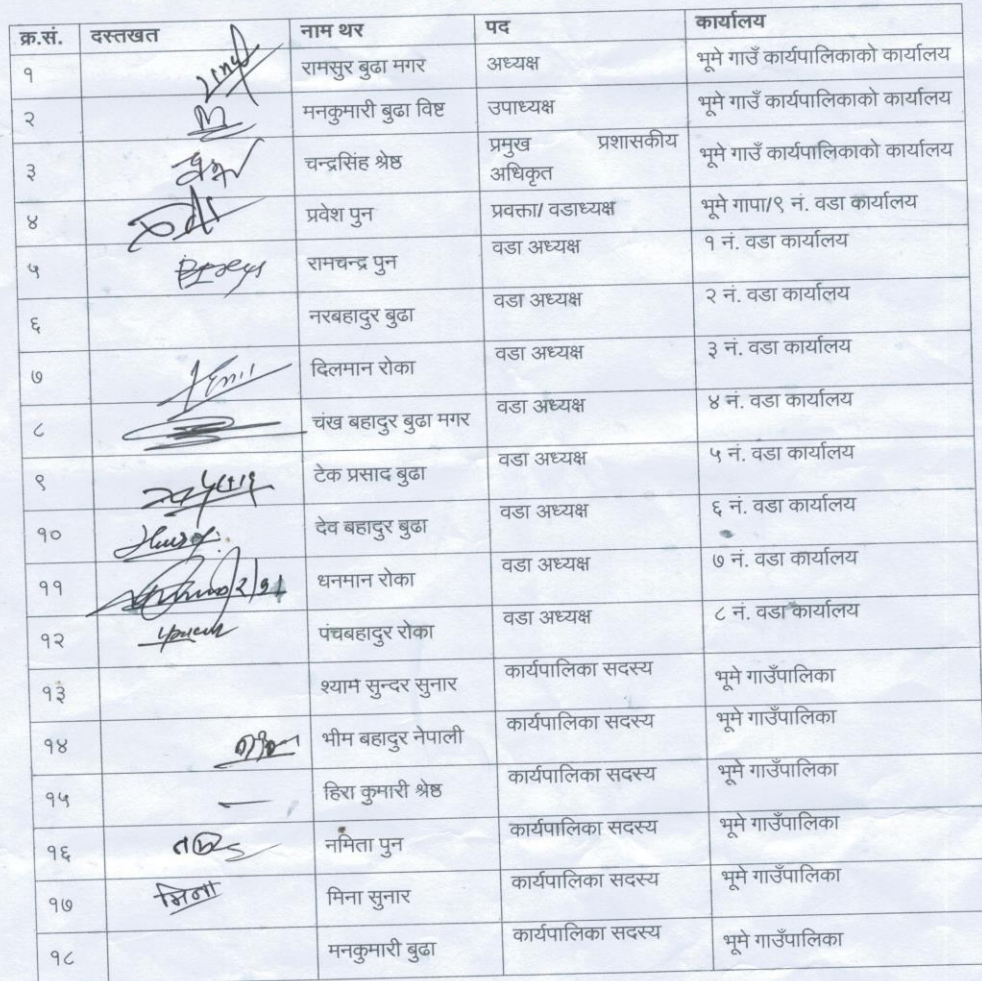 क्र.सं. दस्तखत नाम थर पद कार्यालय
१ रामसुर बुढा मगर अध्यक्ष भूमे गाउँ कार्यपालिकाको कार्यालय
२ मनकुमारी बुढा विष्ट उपाध्यक्ष भूमे गाउँ कार्यपालिकाको कार्यालय
३ चन्द्रसिंह श्रेष्ठ प्रमुख प्रशासकीय
अधिकृत भूमे गाउँ कार्यपालिकाको कार्यालय
४ प्रवेश पुन प्रवक्ता/ वडाध्यक्ष भूमे गापा/९ नं. वडा कार्यालय
५ रामचन्द्र पुन वडा अध्यक्ष १ नं. वडा कार्यालय
६ नरबहादुर बुढा वडा अध्यक्ष २ नं. वडा कार्यालय
७ दिलमान रोका वडा अध्यक्ष ३ नं. वडा कार्यालय
८ चंख बहादुर बुढा मगर वडा अध्यक्ष ४ नं. वडा कार्यालय
९ टेक प्रसाद बुढा वडा अध्यक्ष ५ नं. वडा कार्यालय
१० देव बहादुर बुढा वडा अध्यक्ष ६ नं. वडा कार्यालय
११ धनमान रोका वडा अध्यक्ष ७ नं. वडा कार्यालय
१२ पंचबहादुर रोका वडा अध्यक्ष ८ नं. वडा कार्यालय
१३ श्याम सुन्दर सुनार कार्यपालिका सदस्य भूमे गाउँपालिका
१४ भीम बहादुर नेपाली कार्यपालिका सदस्य भूमे गाउँपालिका
१५ हिरा कुमारी श्रेष्ठ कार्यपालिका सदस्य भूमे गाउँपालिका
१६ नमिता पुन कार्यपालिका सदस्य भूमे गाउँपालिका
१७ मिना मिना सुनार कार्यपालिका सदस्य भूमे गाउँपालिका
१८ मनकुमारी बुढा कार्यपालिका सदस्य भूमे गाउँपालिका